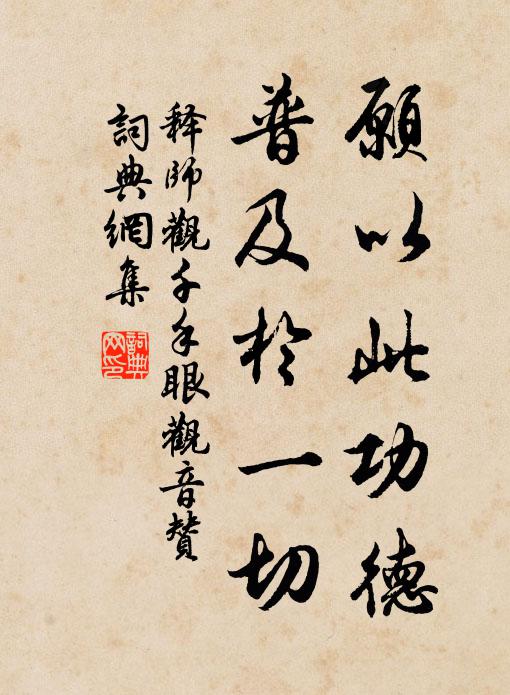 願以此功德
普及於一切
释師觀千手眼觀音贊
詞典網集
詞典網印